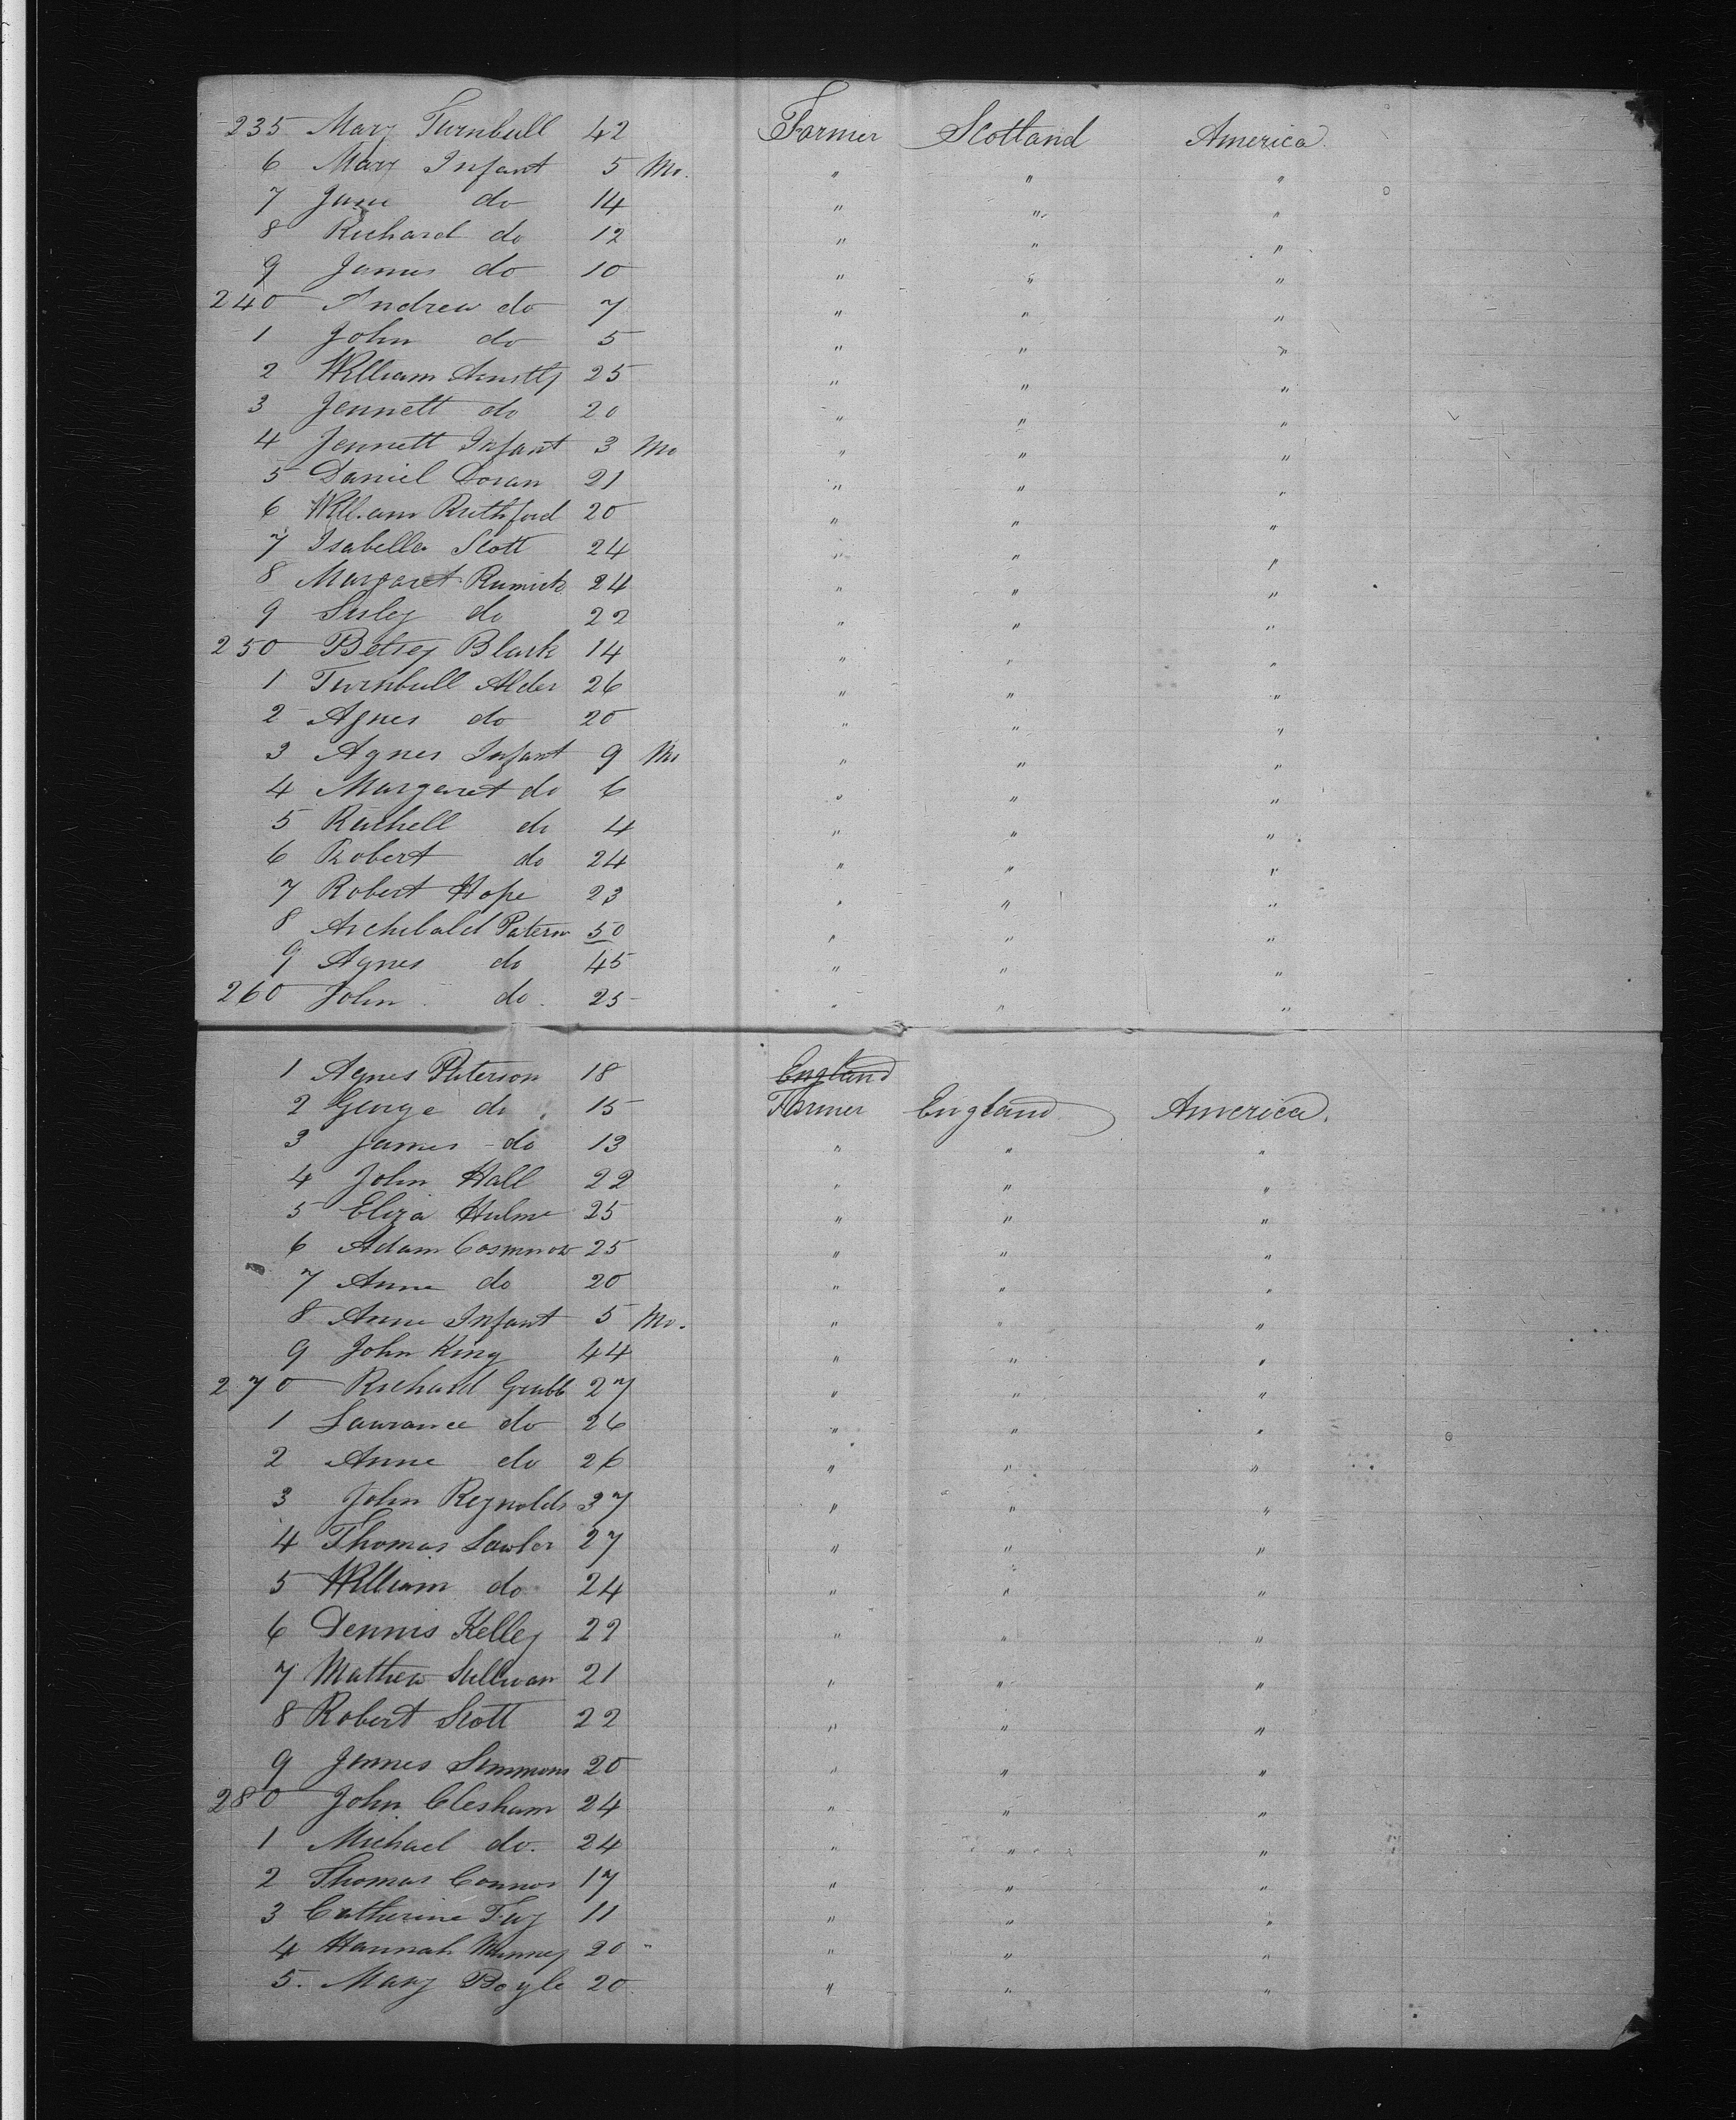 235 Mary Turnbull 42 Farmer Scotland America
6 Mary Infant 5 Mo. " " "
7 Jane do 14 " " "
8 Richard do 12 " " "
9 James do 10 " " "
240 Andrew do 7 " " "
1 John do 5 " " "
2 William 25 " " "
3 Jennett do 20 " " "
4 Jennett Infant 3 Mo " " "
5 Daniel Doran 21 " " "
6 William Ruthford 20 " " "
7 Isabella Scott 24 " " "
8 Margaret 24 " " "
9 Sisley do 22 " " "
250 Betsey Black 14 " " "
1 Turnbull Alder 26 " " "
2 Agnes do 20 " " "
3 Agnes Infant 9 Mo " " "
4 Margaret do 6 " " "
5 Rachell do 4 " " "
6 Robert do 24 " " "
7 Robert Hope 23 " " "
8 Archibald Patern 50 " " "
9 Agnes do 45 " " "
260 John do. 25 " " "
1 Agnes Paterson 18 England
2 George do 15 Farmer England America.
3 James do 13 " " "
4 John Hall 22 " " "
5 Eliza Hulme 25 " " "
6 Adam 25 " " "
7 Anne do 20 " " "
8 Anne Infant 5 Mo. " " "
9 John King 44 " " "
270 Richard Grubb 27 " " "
1 Laurance do 26 " " "
2 Anne do 26 " " "
3 John Reynolds 37 " " "
4 Thomas Lawler 27 " " "
5 William do 24 " " "
6 Dennis Kelley 22 " " "
7 Mathew Sullivan 21 " " "
8 Robert Scott 22 " " "
9 James Simmons 20 " " "
280 John Clesham 24 " " "
1 Michael do. 24 " " "
2 Thomas Connor 17 " " "
3 Catherine 11 " " "
4 Hannah 20 " " " "
5. Mary Boyle 20 " " "